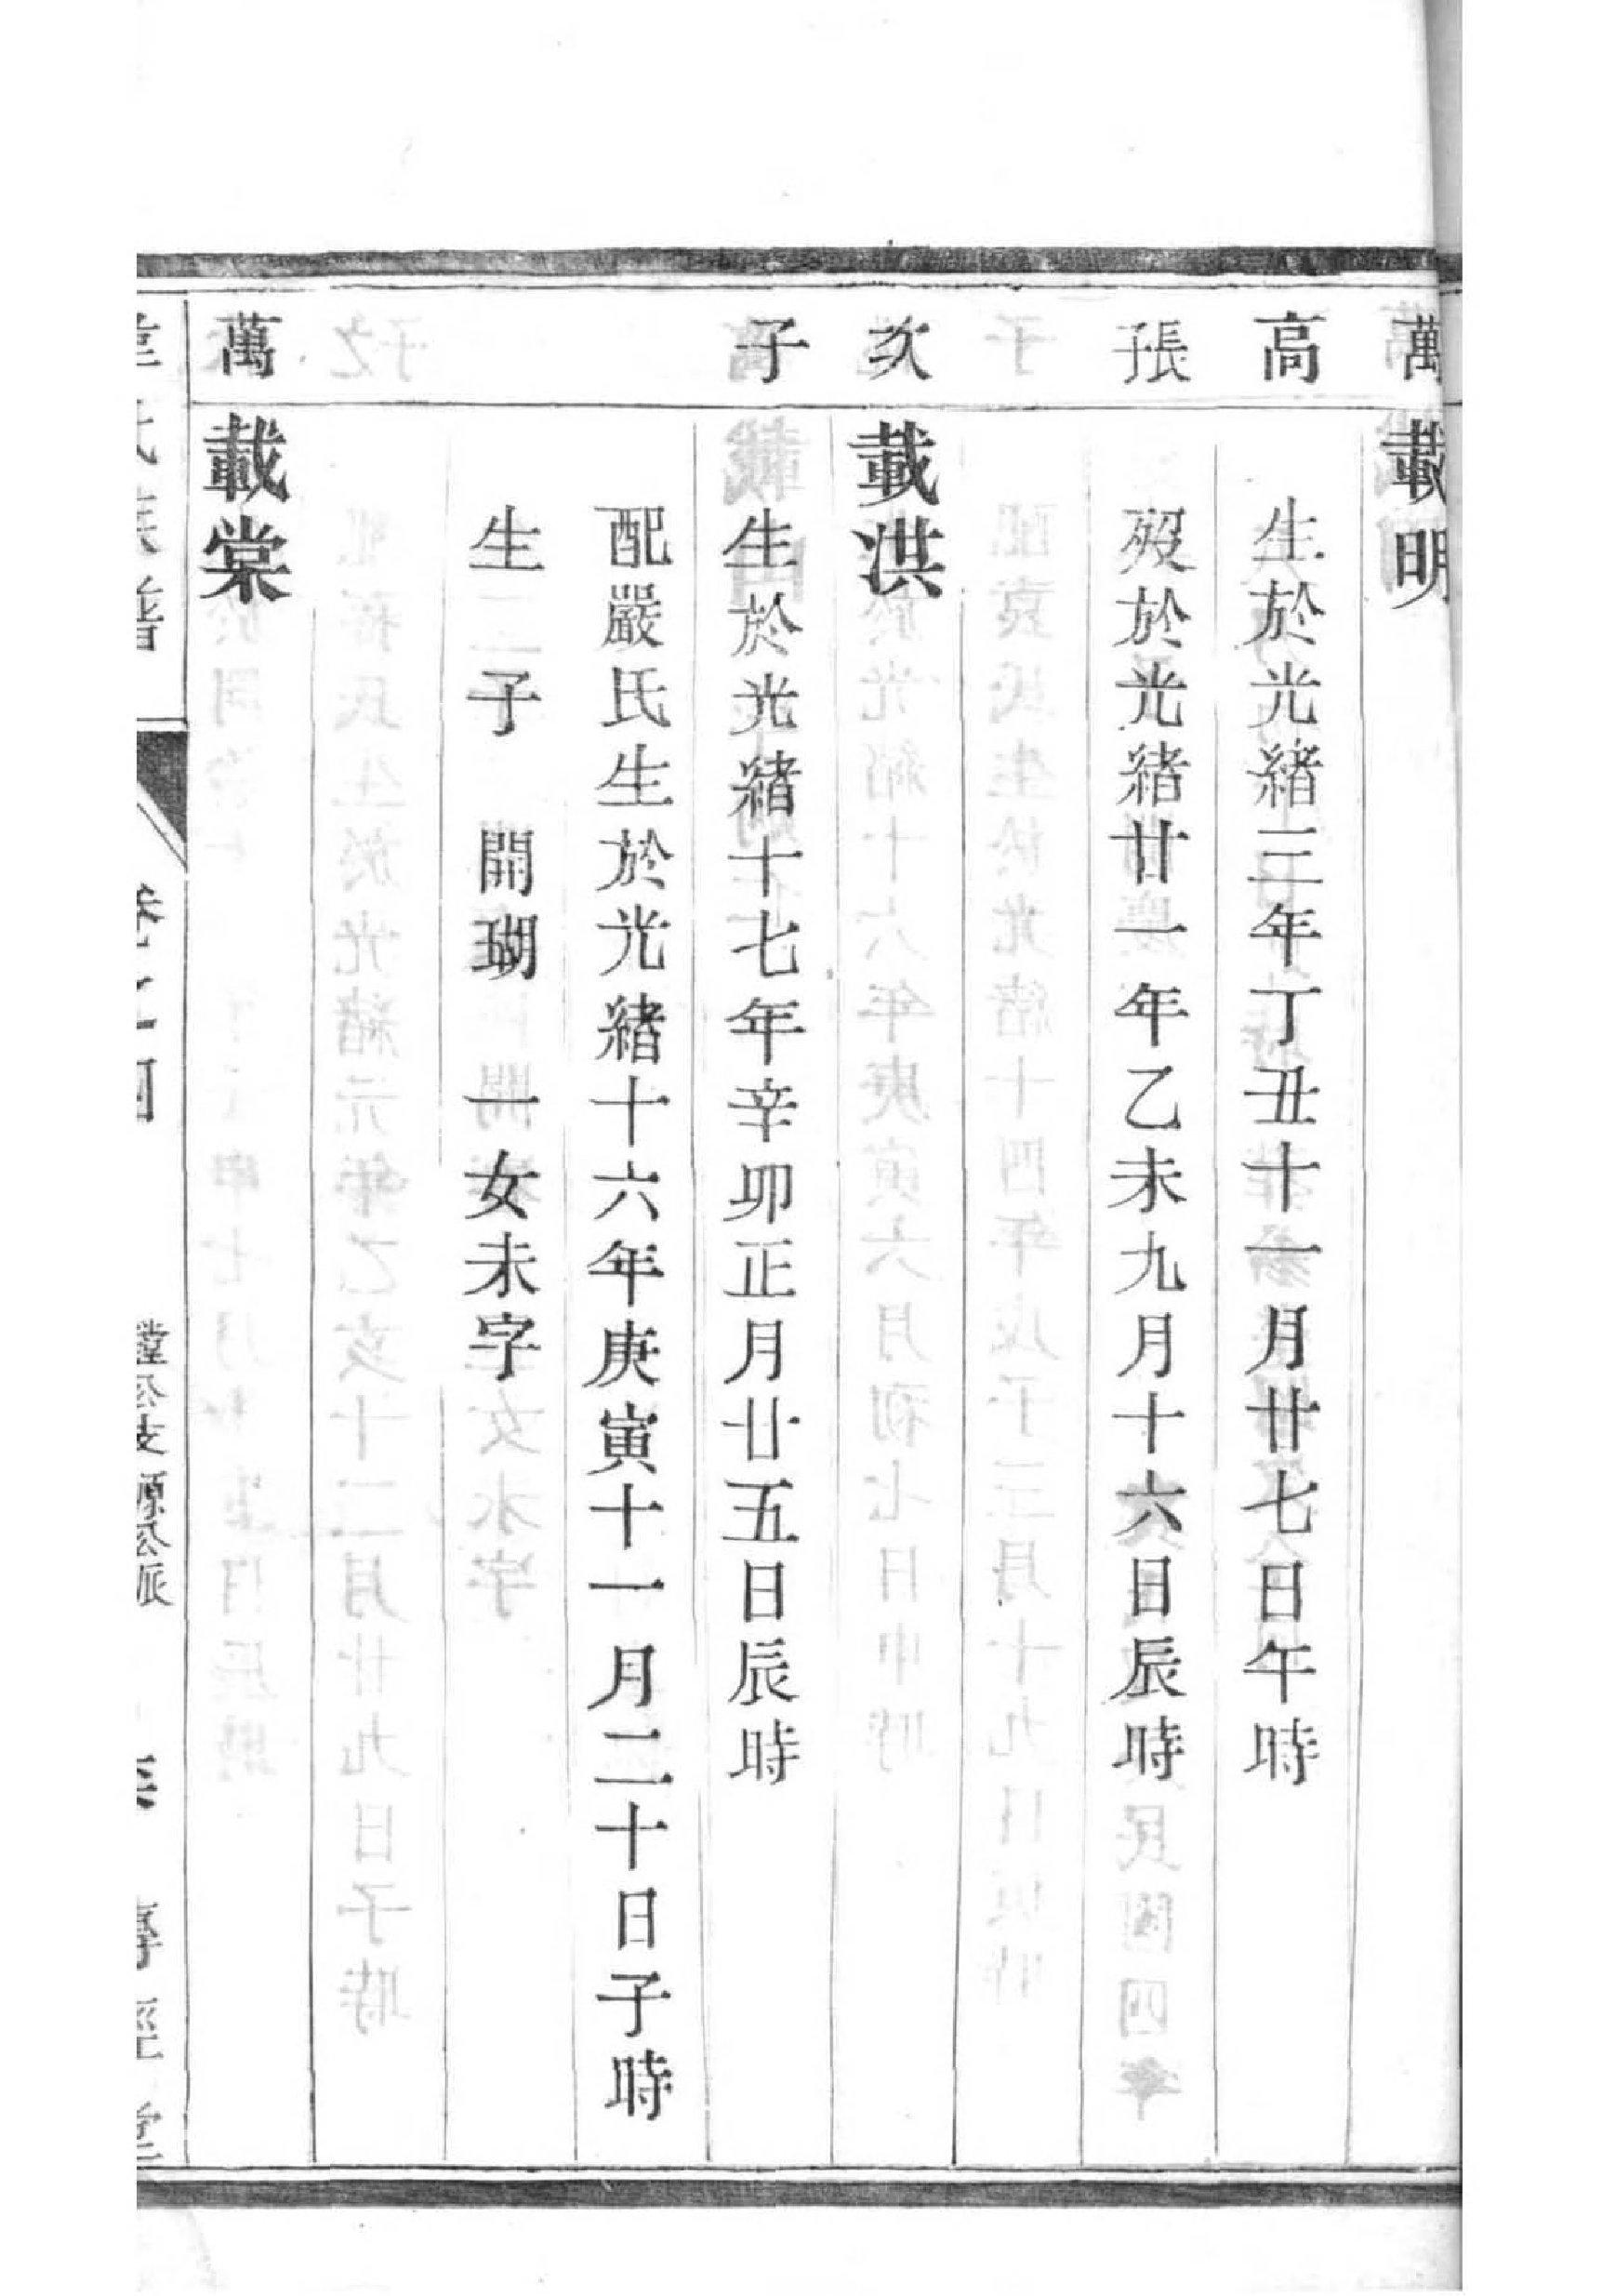 萬 載明
高 生於光緒三年丁丑十一月廿七日午時
張子 歿於光緒廿一年乙未九月十六日辰時
次 載洪
子 生於光緒十七年辛卯正月廿五日辰時
配嚴氏生於光緒十六年庚寅十一月二十日子時
生 子 開瑚 一女未字
萬 載棠
氏族譜 卷之四 公支源公派 經堂